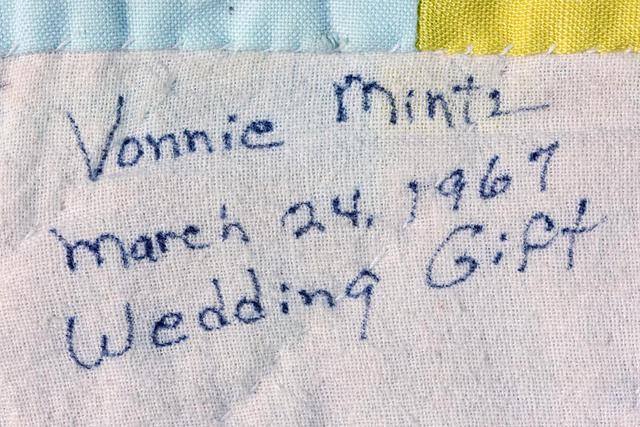 Vonnie Mintz
March 24, 1967
Wedding Gift